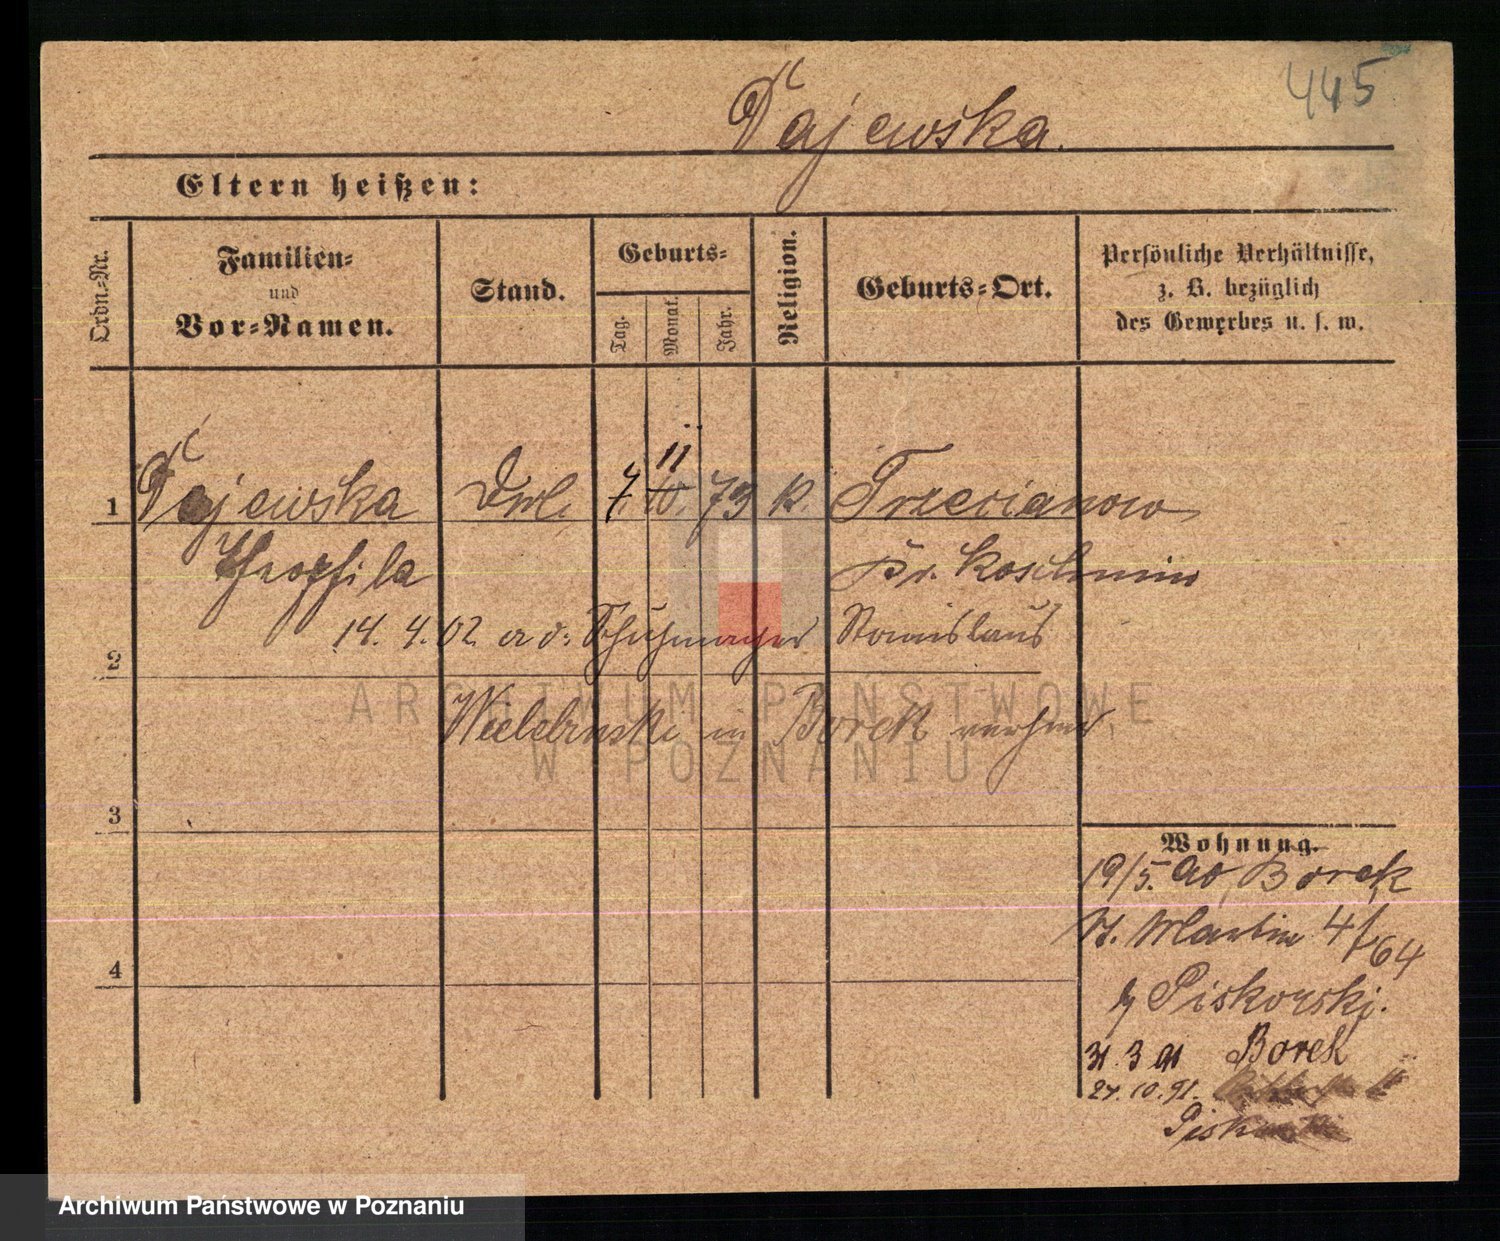 445
Pajewska.
Eltern heißen:
Ordn.-Nr.
Familien-
und
Vor-Namen.
Stand.
Geburts-
Tag.
Monat.
Jahr.
Religion.
Geburts-Ort.
Persönliche Verhältnisse,
z. B. bezüglich
des Gewerbes u. s. w.
11
1 Pajewska 7. 10. 73 K. Trzecianowo
Theophila Kr. Koschmin
14. 4. 02 a. d. Schuhmacher Stanislaus
2
Wielebinski in Borek
3
Wohnung.
19/5. 90 Borek
St. Martin 4/64
b/ Piskorski.
4
31. 3 91 Borek
27. 10. 91.
ARCHIWUM PAŃSTWOWE
W POZNANIU
Archiwum Państwowe w Poznaniu